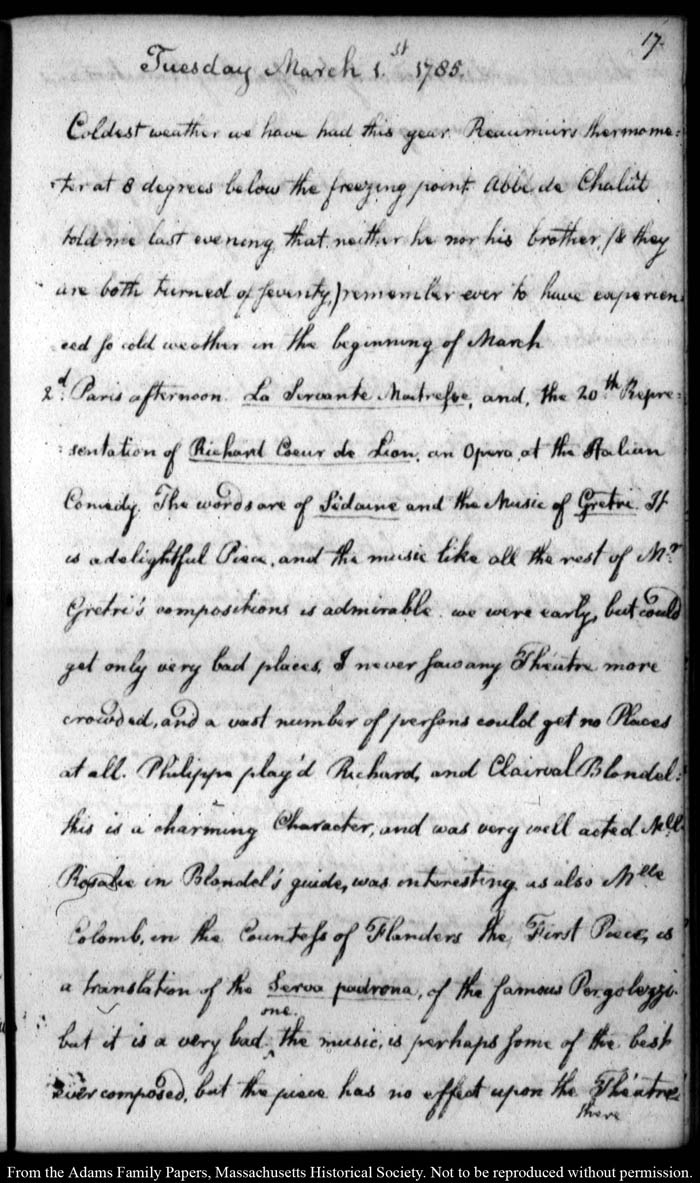 17.
Tuesday March 1.st 1785.
Coldest weather we have had this year. Reaumuirs thermome-
ter at 8 degrees below the freezing point. Abbé de Chalût
told me last evening, that neither he nor his brother, (& they
are both turned of seventy,) remember ever to have experien-
ced so cold weather in the beginning of March
2d. Paris afternoon. La Servante Maitresse, and, the 20th Repre-
sentation of Richard Coeur de Lion, an Opera, at the Italian
Comedy. The words are of Sedaine and the Music of Gretri. It
is a delightful Piece, and the music like all the rest of Mr
Gretri's compositions is admirable. we were early, but could
get only very bad places, I never saw any Théatre more
crowded, and a vast number of persons could get no Places
at all. Philippe play'd Richard, and Clairval Blondel:
this is a charming Character, and was very well acted. Mlle
Rosalie in Blondel's guide, was interesting, as also Mlle
Colomb, in the Countess of Flanders the, First Piece, is
a translation of the Serva padrona, of the famous Pergolezzi.
but it is a very bad one. the music, is perhaps some of the best
ever composed, but the piece has no effect upon the Théatre
there
From the Adams Family Papers, Massachusetts Historical Society. Not to be reproduced without permission.